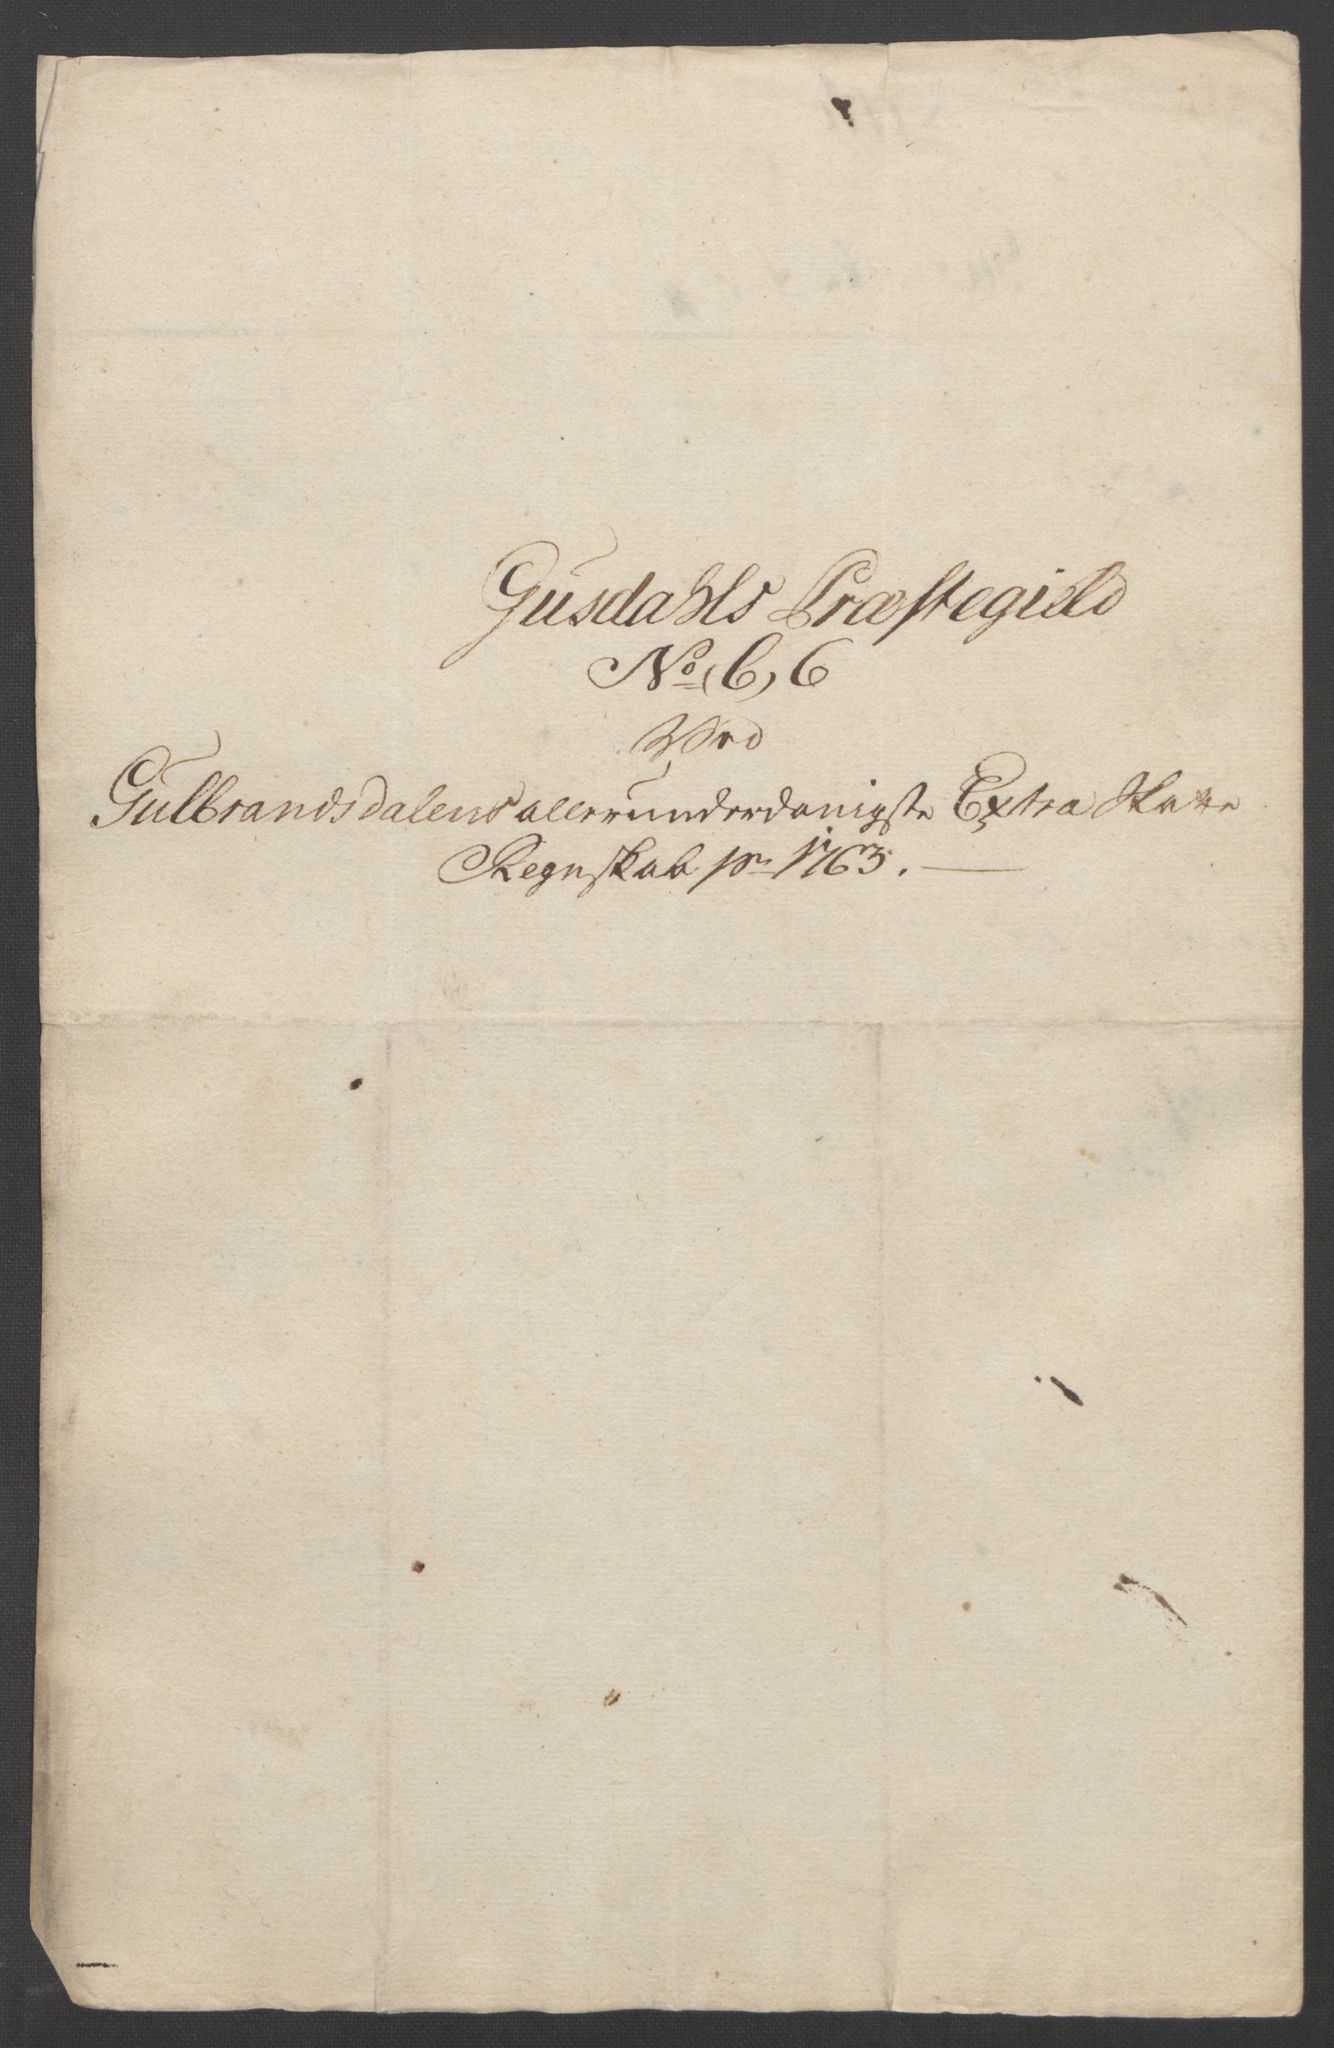 Gusdahls Præstegield
No (6) 6
Ved
Gulbrandsdalens allerunderdanigste Extra Skatte
Regnskab pr 1763.